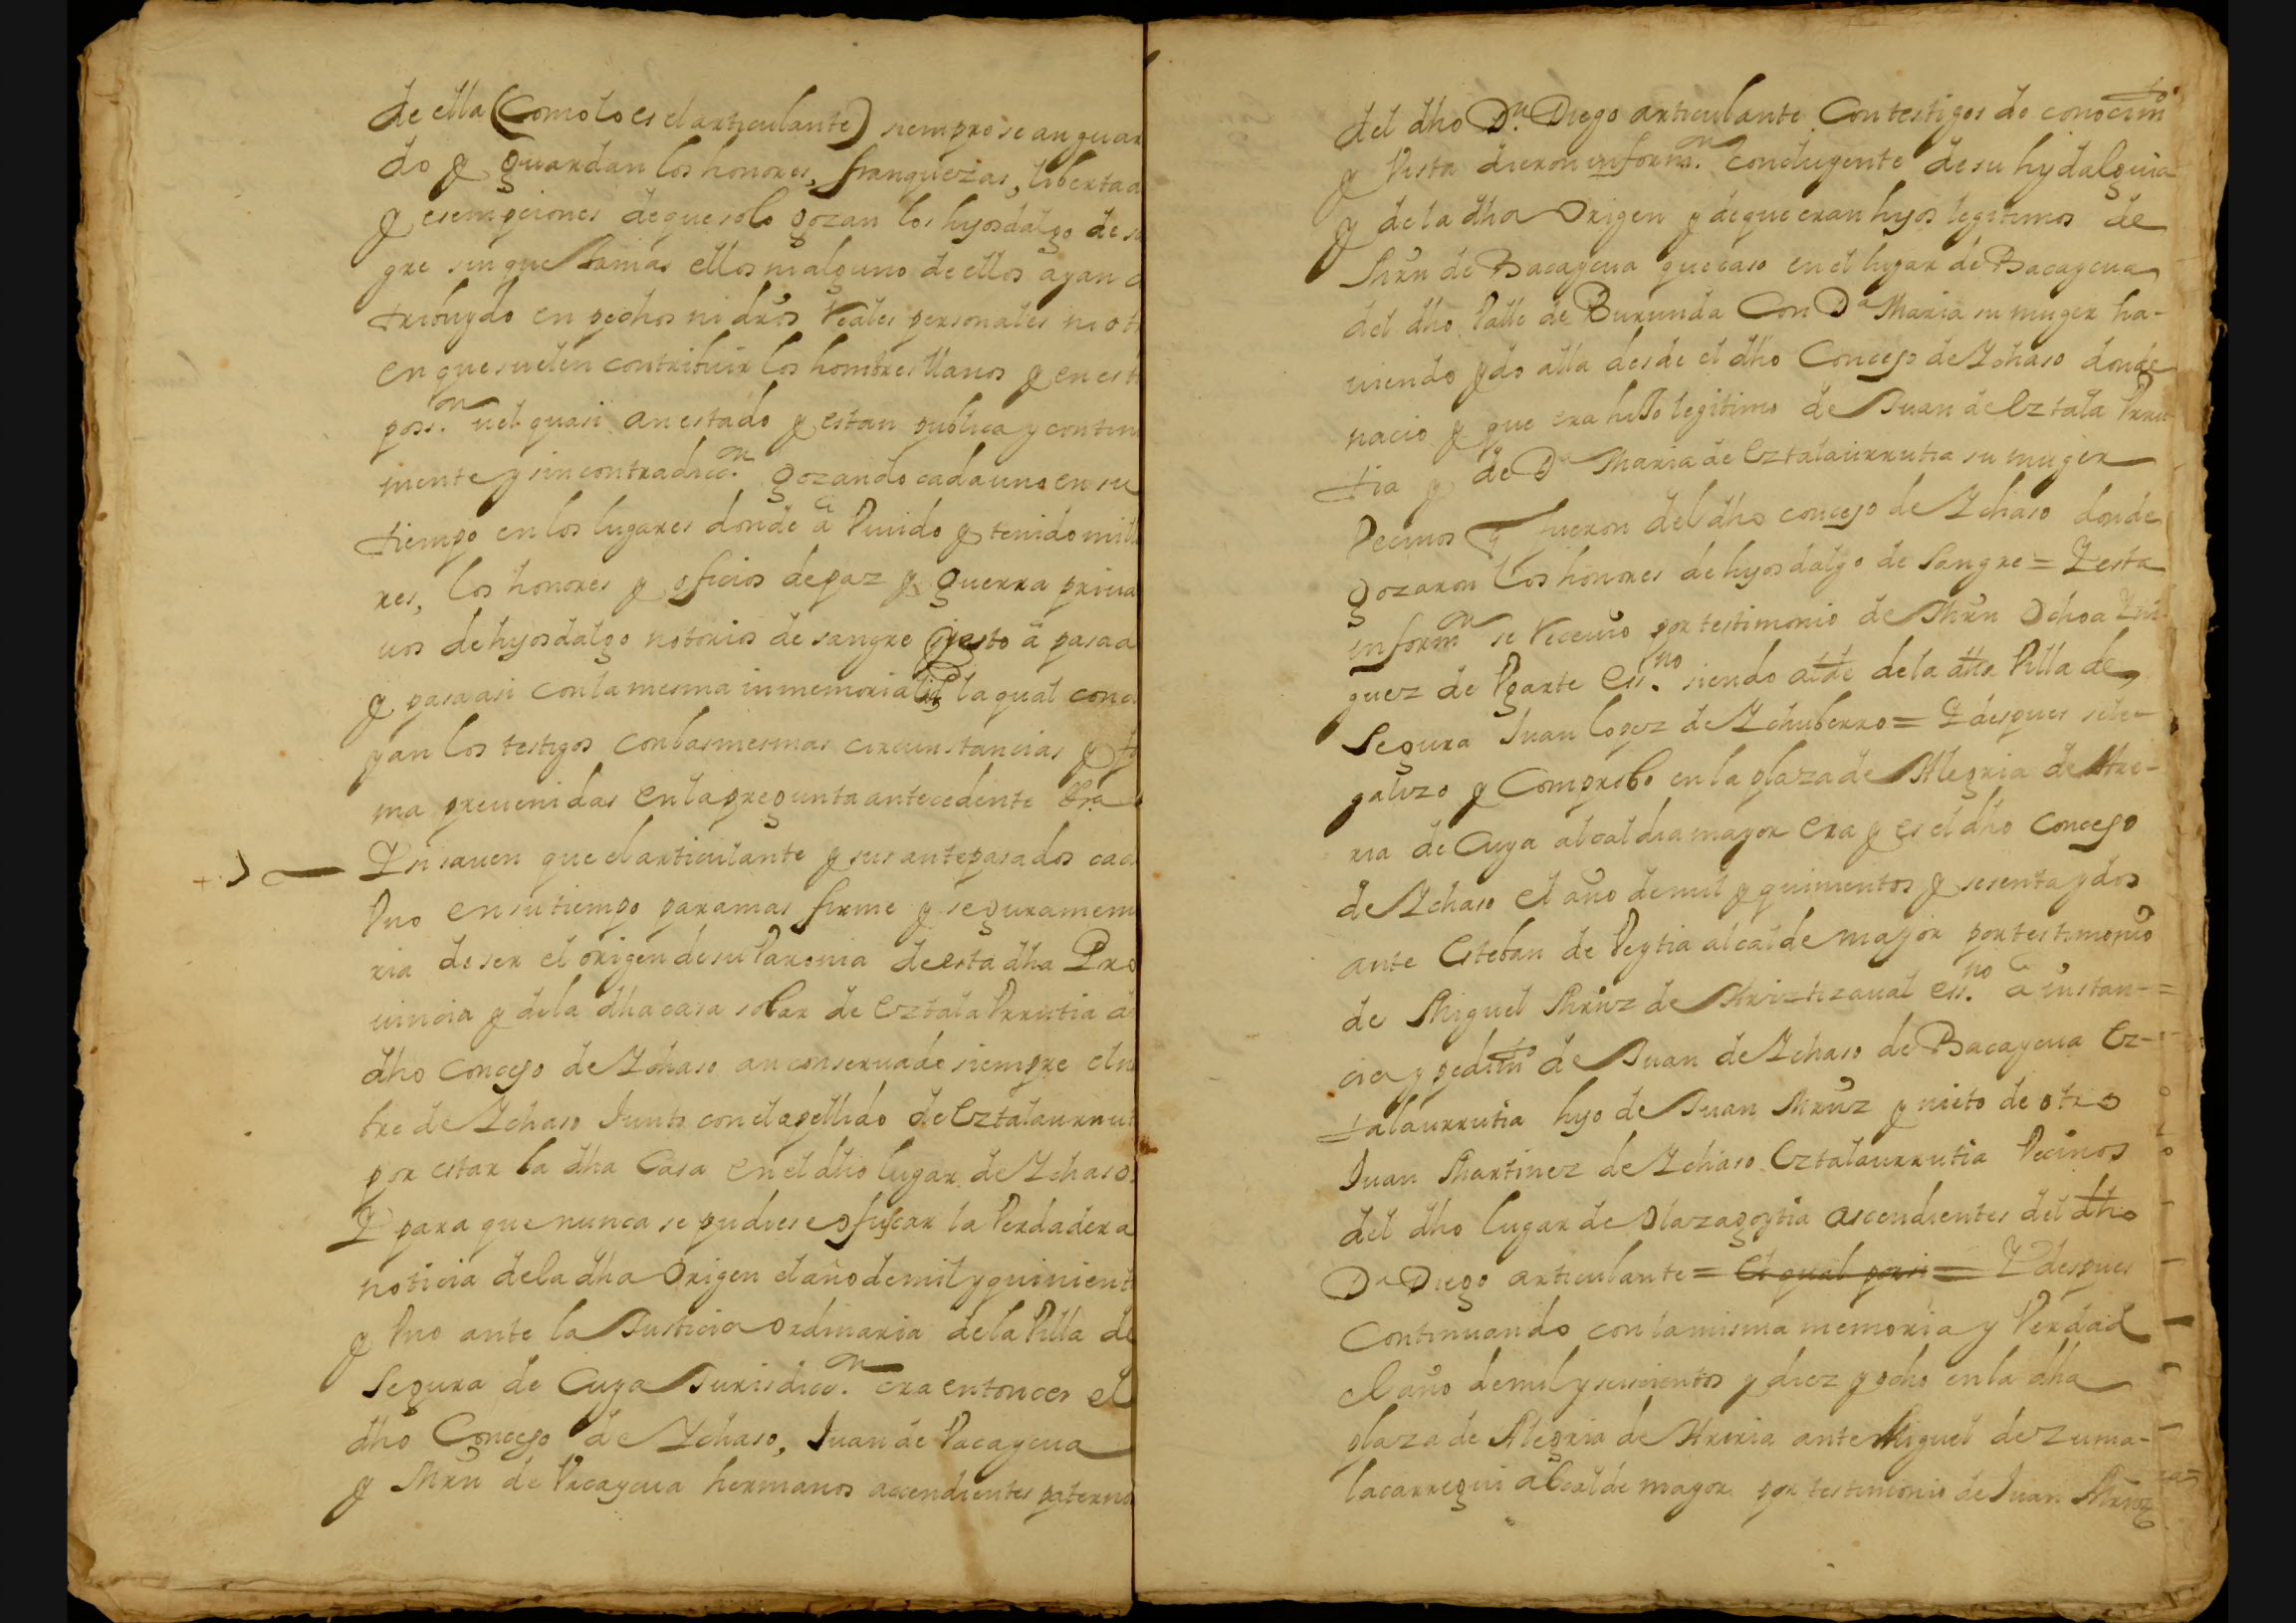 de ella (Como lo es el articulante) siempre se an guar
do y guardan los honores, franquezas, libertad
y esempciones de que solo gozan los hijosdalgo de s
gre sin que Jamas ellos ni alguno de ellos ayan c
tribuydo en pechos ni dros Reales personales ni ot
en que suelen contribuir los hombres llanos y en est
poss.on uel quasi an estado y estan publica y contin
mente y sin contradicc.on gozando cada uno en su
tiempo en los lugares donde â Viuido y tenido mill
res, los honores y oficios de paz y guerra priua
uos de hijosdalgo notorios de sangre y esto â pasad
y pasa asi con la mesma inmemorialid la qual conc
yan los testigos con las mesmas circunstancias y fo
ma preuenidas en la pregunta antecedente &ra
Yn sauen que el articulante y sus antepasados cad
Vno en su tiempo para mas firme y segura mem
ria de ser el origen de su Varonia de esta dha Pro
uincia y de la dha casa solar de Eztala Vrrutia d
dho Concejo de Ychaso an conseruado siempre el n
bre de Ychaso Junto con el apellido de Eztalaurrut
por estar la dha Casa en el dho lugar de Ychaso
Y para que nunca se pudiese ofuscar la Verdadera
noticia de la dha Origen el año de mil y quinient
y Vno ante la Justicia ordinaria de la Villa de
Segura de Cuya Jurisdicc.on era entonces el
dho Concejo de Ychaso, Juan de Vacaycua
y Mrn de Vacaycua hermanos ascendientes paterno
del dho Dn. Diego articulante Con testigos de conocimto
y Vista dieron inform.on concluyente de su hydalguia
y de la dha Origen y de que eran hijos legitimos de
Mrn de Bacaycua que caso en el lugar de Bacaycua
del dho Valle de Burunda Con Da Maria su muger ha-
uiendo ydo alla desde el dho Concejo de Ychaso donde
nacio y que era hiJo legitimo de Juan de Eztala Vrru
tia y de Da Maria de Eztalaurrutia su muger
Vecinos q fueron del dho concejo de Ychaso donde
gozaron los honores de hijosdalgo de Sangre = Y esta
informon se Receuio por testimonio de Mrn Ochoa Yñi
guez de Vgarte ess.no siendo alde de la dha Villa de
Segura Juan lopez de Ychuberro = Y despues se le-
galizo y Comprobo en la plaza de Alegria de Are-
ria de Cuya alcaldia mayor era y es el dho concejo
de Ychaso el año de mil y quinientos y sesenta y dos
ante Esteban de Veytia alcalde mayor por testimonio
de Miguel Mrnz de Ariztizaual ess.no â instan-
cia y pedimto de Juan de Ychaso de Bacaycua Ez-
talaurrutia hijo de Juan Mrnz y nieto de otro
Juan Martinez de Ychaso Eztalaurrutia Vecinos
del dho lugar de Olazagoytia ascendientes del dho
Dn Diego articulante = El qual por si = Y despues
Continuando con la misma memoria y Verdad
el año de mil y seiscientos y diez y ocho en la dha
plaza de Alegria de Areria ante Miguel de Zuma-
lacarregui alcalde mayor por testimonio de Juan Mrnz